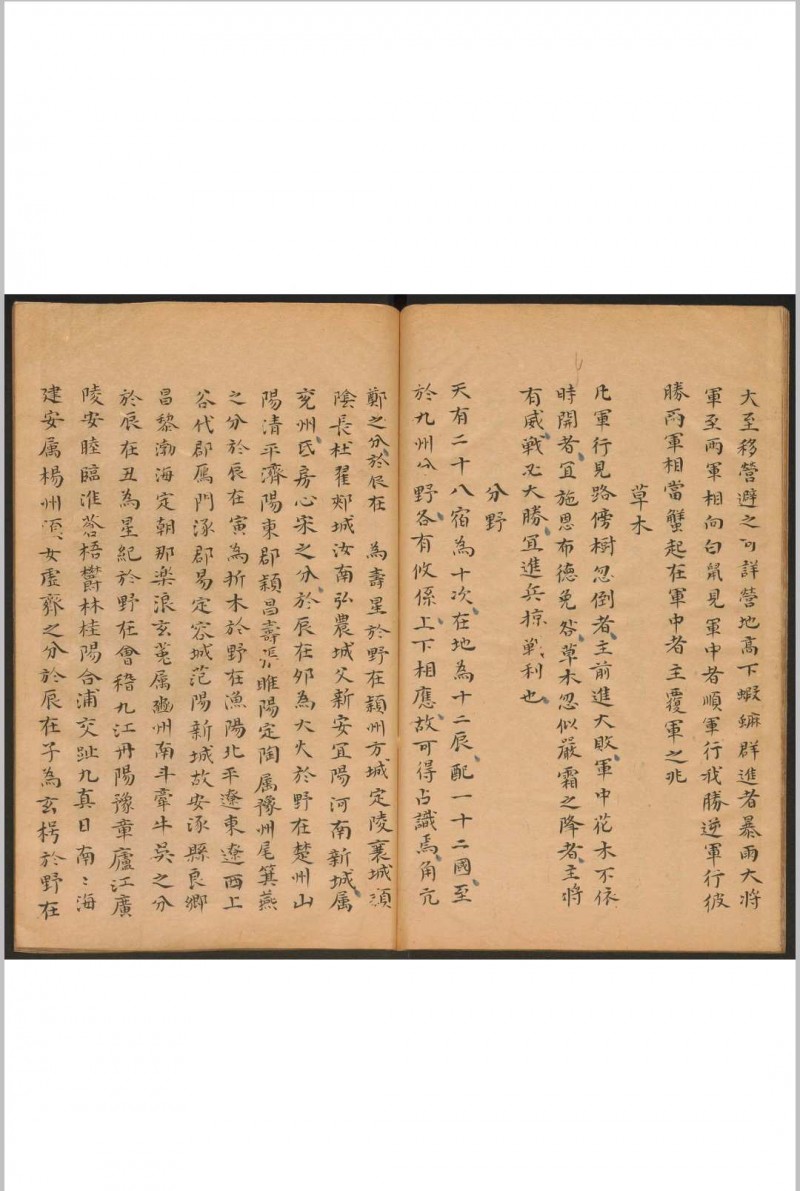 大至移營避之可詳營地高下蝦蟆群進者暴雨大將
軍至兩軍相向白鼠見軍中者順軍行我勝逆軍行彼
勝兩軍相當蟹起在軍中者主覆軍之兆
草木
凡軍行見路傍樹忽倒者主前進大敗軍中花木不依
時開者宜施恩布德免咎草木忽似嚴霜之降者主將
有威戰必大勝宜進兵掠戰利也
分野
天有二十八宿為十次在地為十二辰配一十二國至
於九州分野各有攸係上下相應故可得占識焉角亢
鄭之分於辰在 為壽星於野在潁州方城定陵襄城須
陰長杜翟郟城汝南弘農城父新安宜陽河南新城属
兖州氐房心宋之分於辰在夘為大火於野在楚州山
陽清平濟陽東郡潁昌壽張睢陽定陶属豫州尾箕燕
之分於辰在寅為析木於野在漁陽北平遼東遼西上
谷代郡厲門涿郡易定容城范陽新城故安涿縣良鄉
昌黎渤海定朝那楽浪玄菟属幽州南斗牽牛吳之分
於辰在丑為星紀於野在會稽九江丹陽豫章廬江廣
陵安睦臨淮蒼梧欝林桂陽合浦交趾九真日南〻海
建安属楊州湏女虚齊之分於辰在子為玄枵於野在